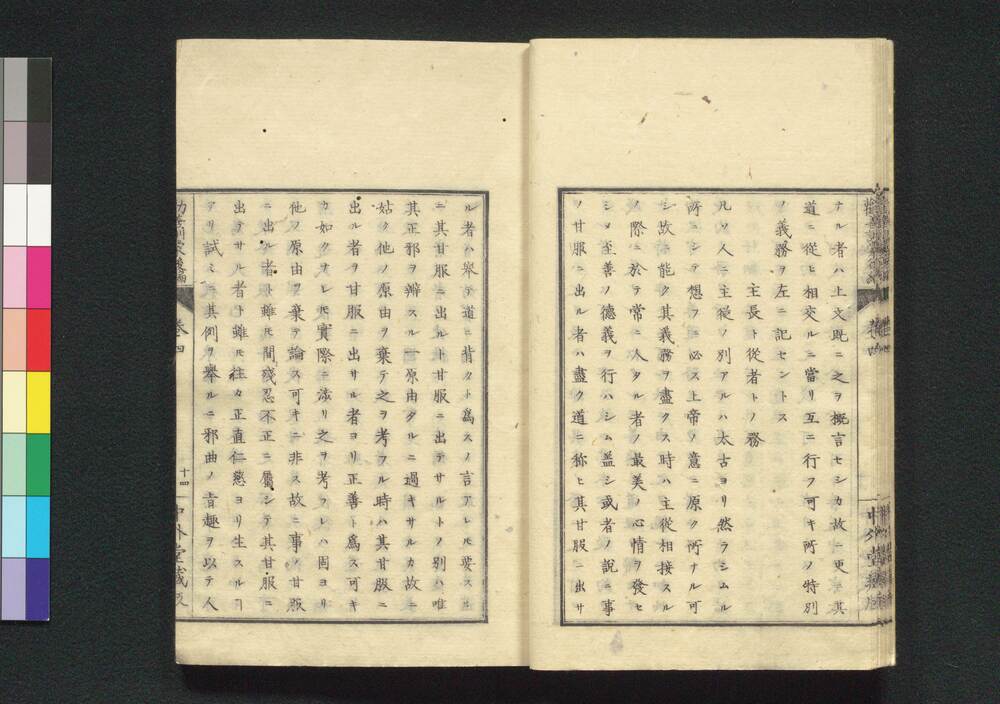 ナル者ハ上文既ニ之ヲ概言セシカ故ニ更ニ其
道ニ從ヒ相交ルニ當リ互ニ行フ可キ所ノ特別
ノ義務ヲ左ニ記セントス
主長ト從者トノ務
凡ソ人ニ主從ノ別アルハ太古ヨリ然ラシムル
所ニシテ想フニ必ス上帝ノ意ニ原ク所ナル可
シ故ニ能ク其義務ヲ盡クス時ハ主從相接スル
ノ際ニ於テ常ニ人タル者ノ最美ノ心情ヲ發セ
シメ至善ノ德義ヲ行ハシム蓋シ或者ノ說ニ事
ノ甘服ニ出ル者ハ盡ク道ニ称ヒ其甘服ニ出サ
ル者ハ舉テ道ニ背クト爲スノ言アレ𪜈要スル
ニ其甘服ニ出ルト甘服ニ出テサルトノ別ハ唯
其正邪ヲ辨スル一原由タルニ過キサルカ故ニ
姑ク他ノ原由ヲ棄テ之ヲ考フル時ハ其甘服ニ
出ル者ヲ甘服ニ出サル者ヨリ正善ト爲ス可キ
カ如クナレ𪜈實際ニ渉リ之ヲ考フレハ固ヨリ
他ノ原由ヲ棄テ論ス可キニ非ス故ニ事ノ甘服
ニ出ル者ト雖𪜈間殘忍不正ニ屬シテ其甘服ニ
出テサル者ト雖𪜈往々正直仁慈ヨリ生スルヿ
アリ試ミニ其例ヲ舉ルニ邪曲ノ旨趣ヲ以テ人
卷四
十四
中外堂藏版